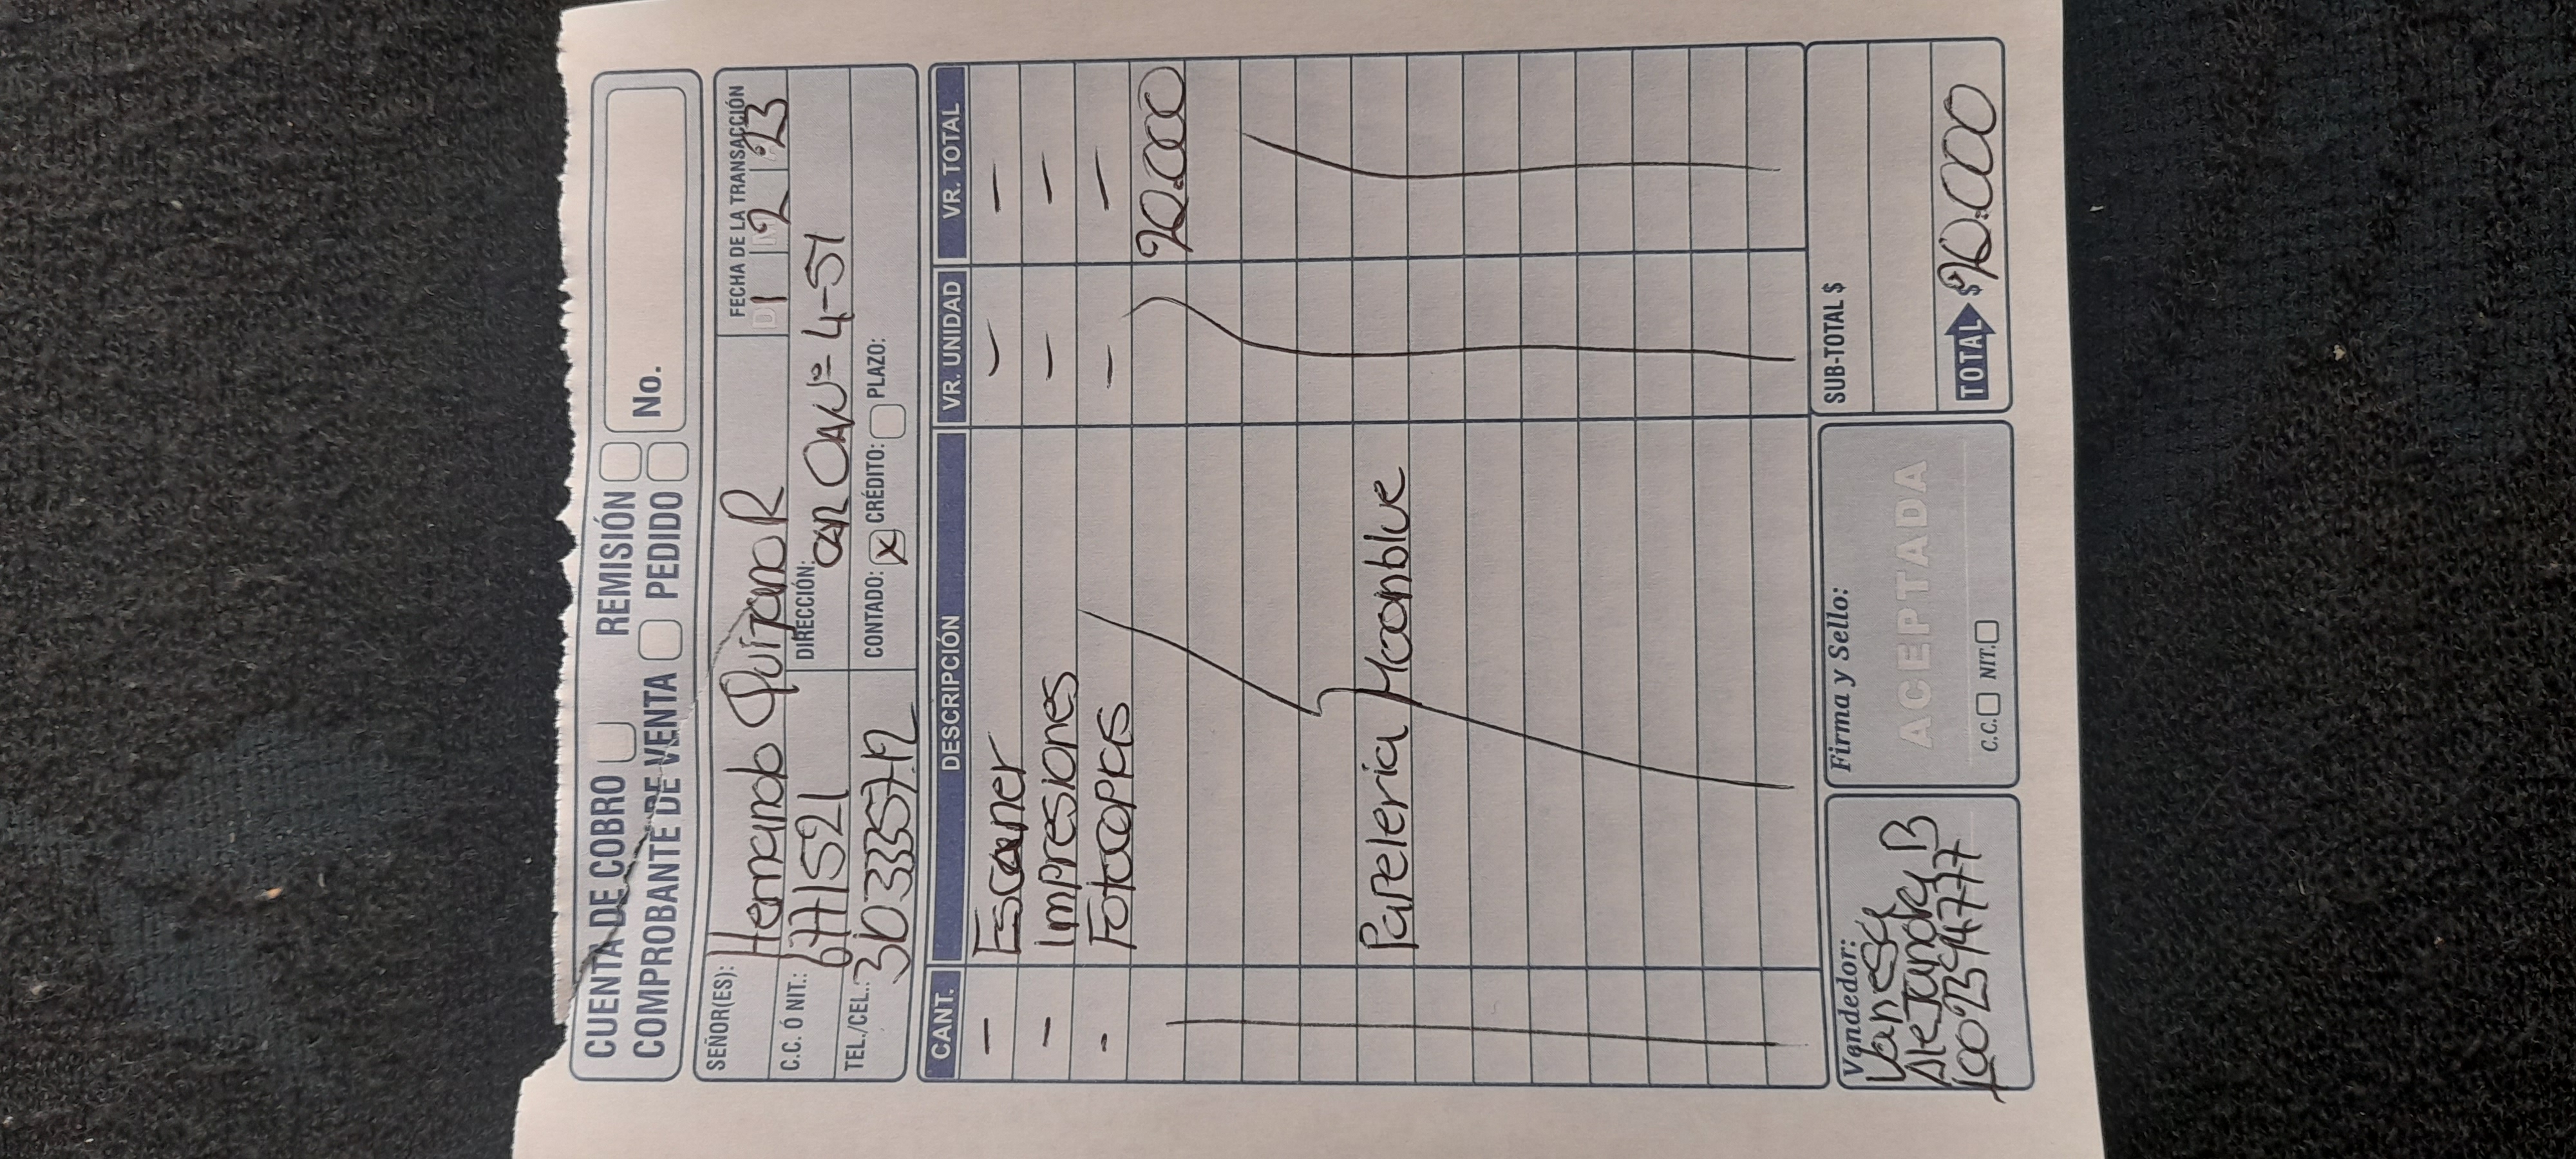 CUENTA DE COBRO REMISIÓN
COMPROBANTE DE VENTA PEDIDO No.
SEÑOR(ES): Hernando Quijano R
FECHA DE LA TRANSACCIÓN
D1 2 23
C.C. Ó NIT.: 6771521
DIRECCIÓN:
TEL./CEL.:
CONTADO: X CRÉDITO: PLAZO:
CANT. DESCRIPCIÓN VR. UNIDAD VR. TOTAL
- Escaner - -
- Impresiones - -
- Fotocopias - -
20.000
Papeleria Moonblue
Vendedor:
Vanesa
Alejandra B
Firma y Sello:
ACEPTADA
C.C. NIT.
SUB-TOTAL $
TOTAL $ 20.000